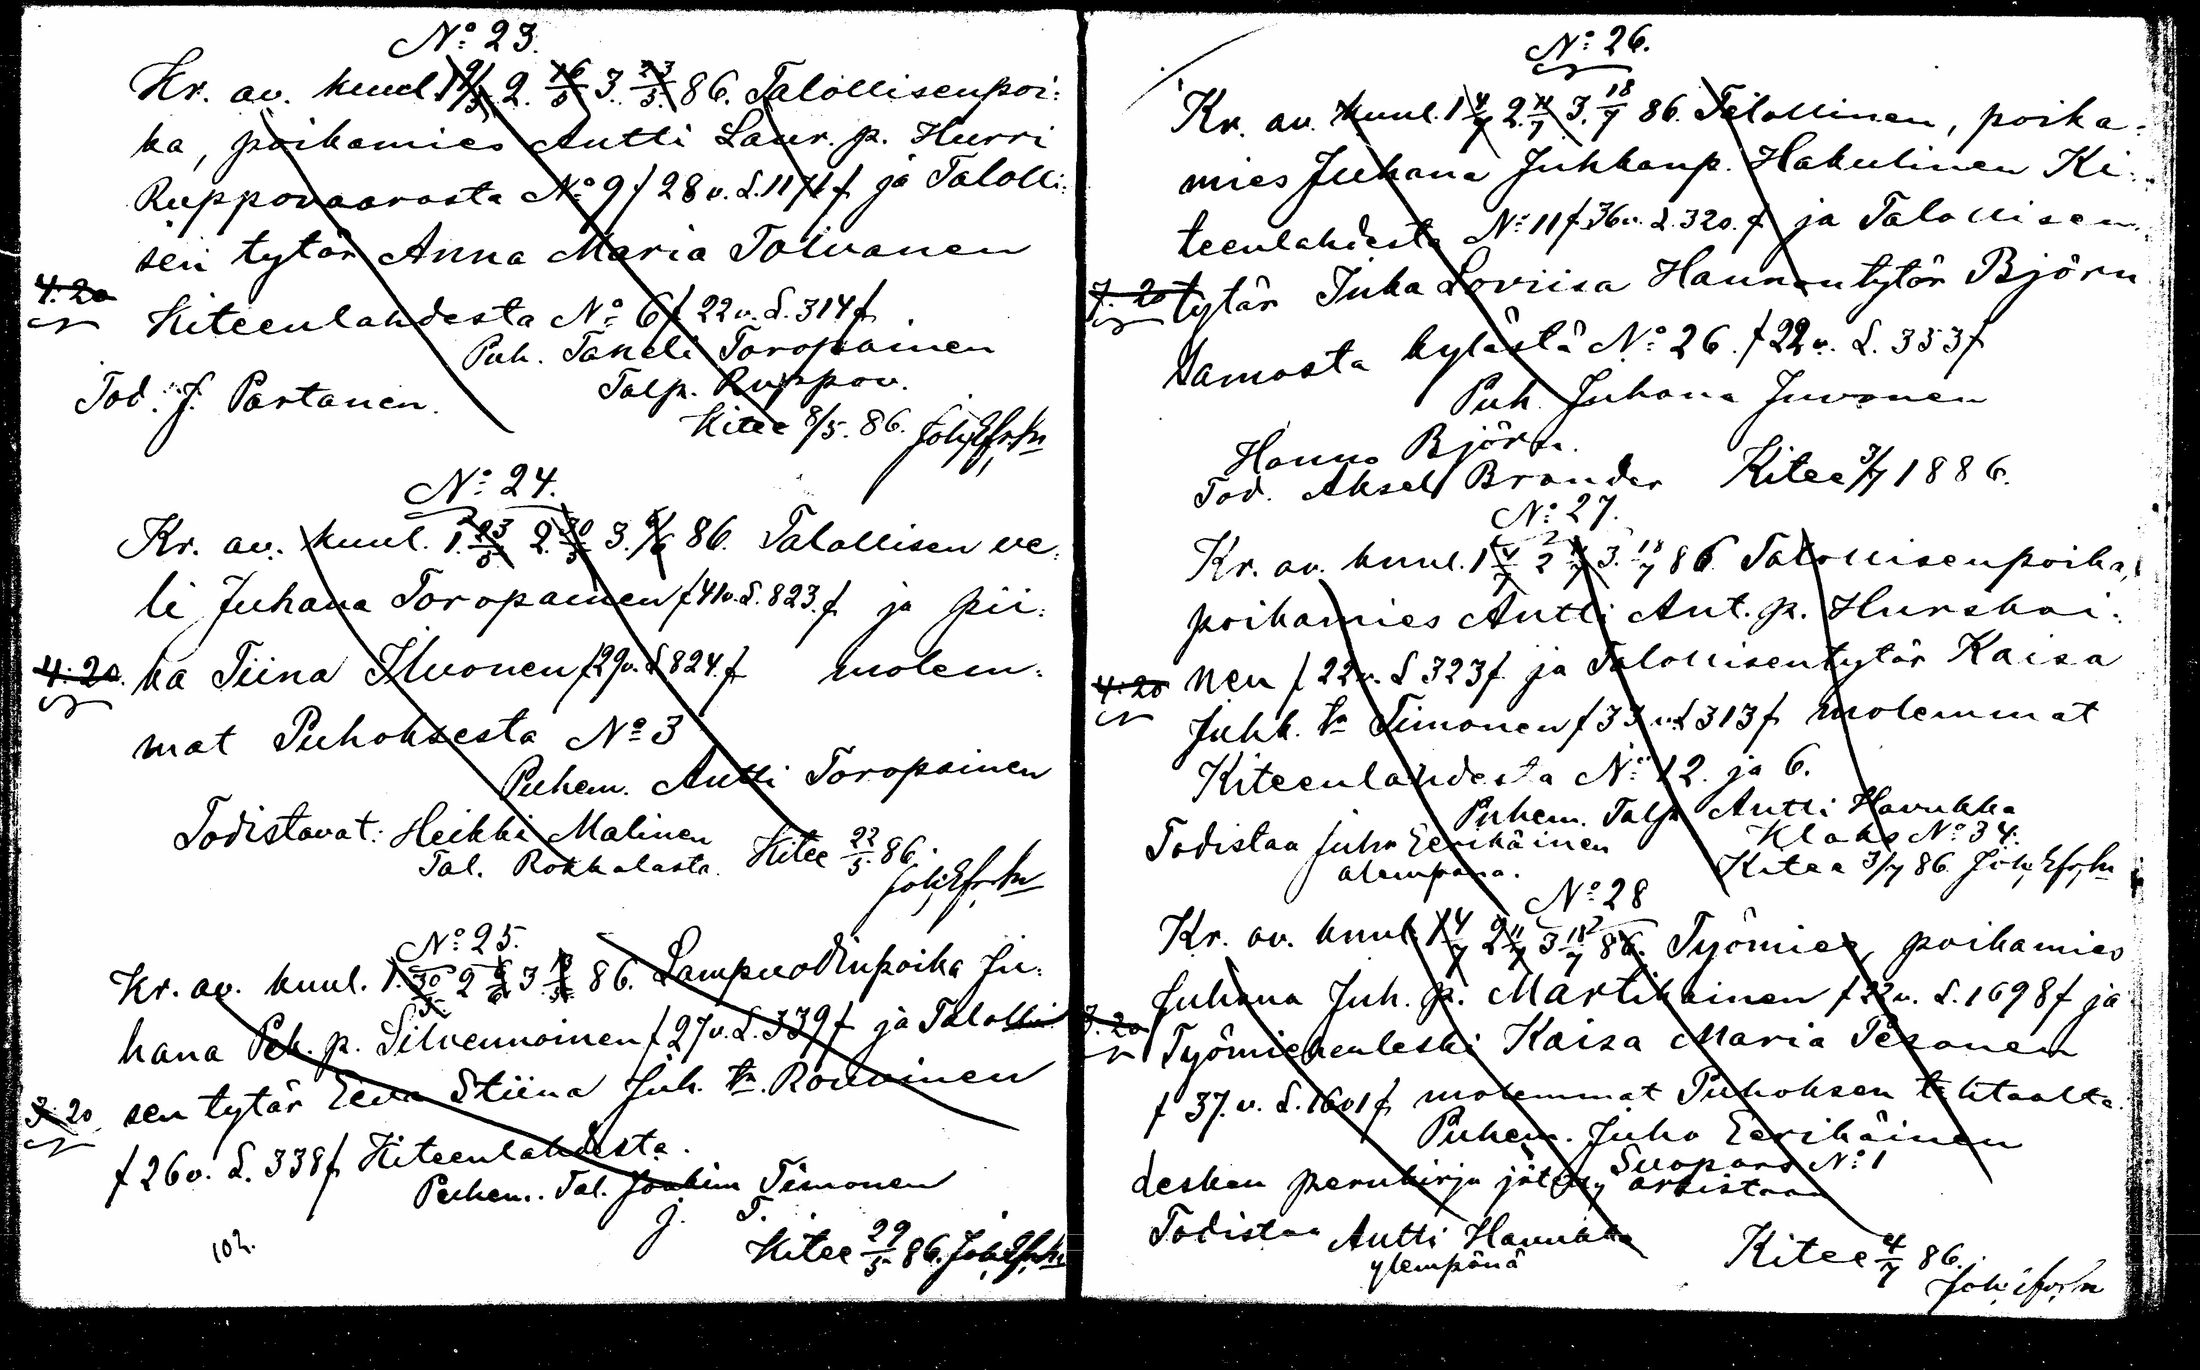 No: 23.
Kr. av. kuul. 1. 9/5 2. 16/5 3. 23/5 86. Talollisenpoi:
ka, poikamies Antti Laur. p. Hurri
Ruppovaarasta No: 9 f 28 v. L. 1171 f ja Talolli:
sen tytär Anna Maria Tolvanen
4: 20
Kiteenlahdesta No: 6 f 22 v. L. 314 f.
Puh. Taneli Toropainen
Talp. Ruppov.
Tod. J. Partanen.
Kitee 8/5. 86.
No: 24.
Kr. av. kuul. 1. 23/5 2. 30/5 3. 6/6 86. Talollisen ve:
li Juhana Toropainen f 41 v. L. 823. f ja pii:
4: 20. ka Tiina Iluonen f 29 v. L 824. f molem:
mat Puhoksesta No: 3
Puhem. Antti Toropainen
Todistavat: Heikki Malinen
Tal. Rokkalasta. Kitee 22/5 86.
No: 25.
Kr. av. kuul. 1. 30/5 2 6/6 3. 86. Lampuodinpoika Ju:
hana Pek. p. Silvennoinen f 27 v. L. 339 f ja Talolli
3: 20 sen tytär Eeva Stiina Juh. tr. Rouvinen
f 26 v. L. 338 f Kiteenlahdesta.
Puhem. Tal. Joakim Timonen
J. T.
Kitee 29/5 86.
102.
No: 26.
Kr. av. kuul. 1 4/7 2. 11/7 3. 18/7 86. Talollinen, poika:
mies Juhana Juhkanp. Hakulinen Ki:
teenlahdesta No: 11 f 36 v. L. 320. f ja Talollisen
7: 20 tytär Inka Loviisa Hannuntytär Björn
samasta kylästä No: 26. f 22 v. L. 353 f
Puh. Juhana Juvonen
Hannu Björn.
Tod. Aksel Brander Kitee 3/7 1886.
No: 27.
Kr. av. kuul. 1 4/7 2 11/7 3. 18/7 86. Talollisenpoika,
poikamies Antti Ant. p. Hurskai:
4: 20 nen f 22 v. L 323 f ja Talollisentytär Kaisa
Juhk. tr Timonen f 33 v. L 313 f molemmat
Kiteenlahdesta No: 12. ja 6.
Puhem. Talp Antti Havukka
Todistaa Juho Eerikäinen
No: 34.
alempana.
Kitee 3/7 86.
No: 28
Kr. av. kuul. 1 4/7 2 11/7 3 18/7 86. Työmies, poikamies
Juhana Juh. p. Martikainen f 22 v. L. 1698 f ja
3: 20 Työmiehenleski Kaisa Maria Pesonen
f 37. v. L. 1601 f molemmat Puhoksen tehtaalta.
Puhem. Juho Eerikäinen
Suopars No: 1
lesken perukirja
Todistaa Antti Havukka
ylempänä
Kitee 4/7 86.